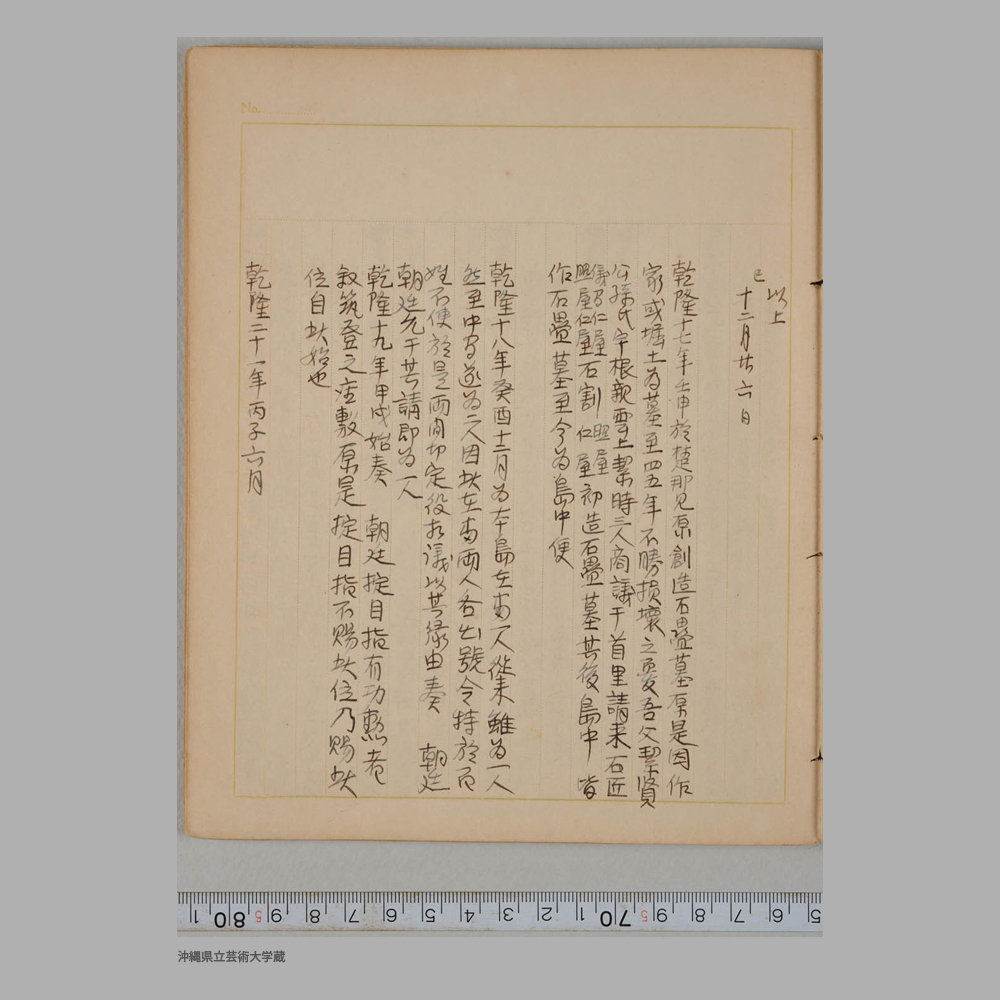 No.
以上
巳
十二月廿六日
乾隆十七年壬申於楚那見原創造石疊墓原是因作
家或堀土為墓至四五年不勝損壞之憂吾父絜賢
公孫氏宇根親雲上絜時三人商議于首里請来石匠
仁屋石割照屋仁屋初造石疊墓其後島中皆
作石疊墓至今為島中便
乾隆十八年癸酉十二月為本島在番一人從来雖為一人
然至中古遂為二人因此在番両人各出號令特於百
姓不便於是両間切定役相議以其縁由奏 朝廷
朝廷允于其請即為一人
乾隆十九年甲戌始奏 朝廷掟目指有功勲者
叙筑登之座敷原是掟目指不賜此位乃賜此
位自此始也
乾隆二十一年丙子六月
沖縄県立芸術大学蔵